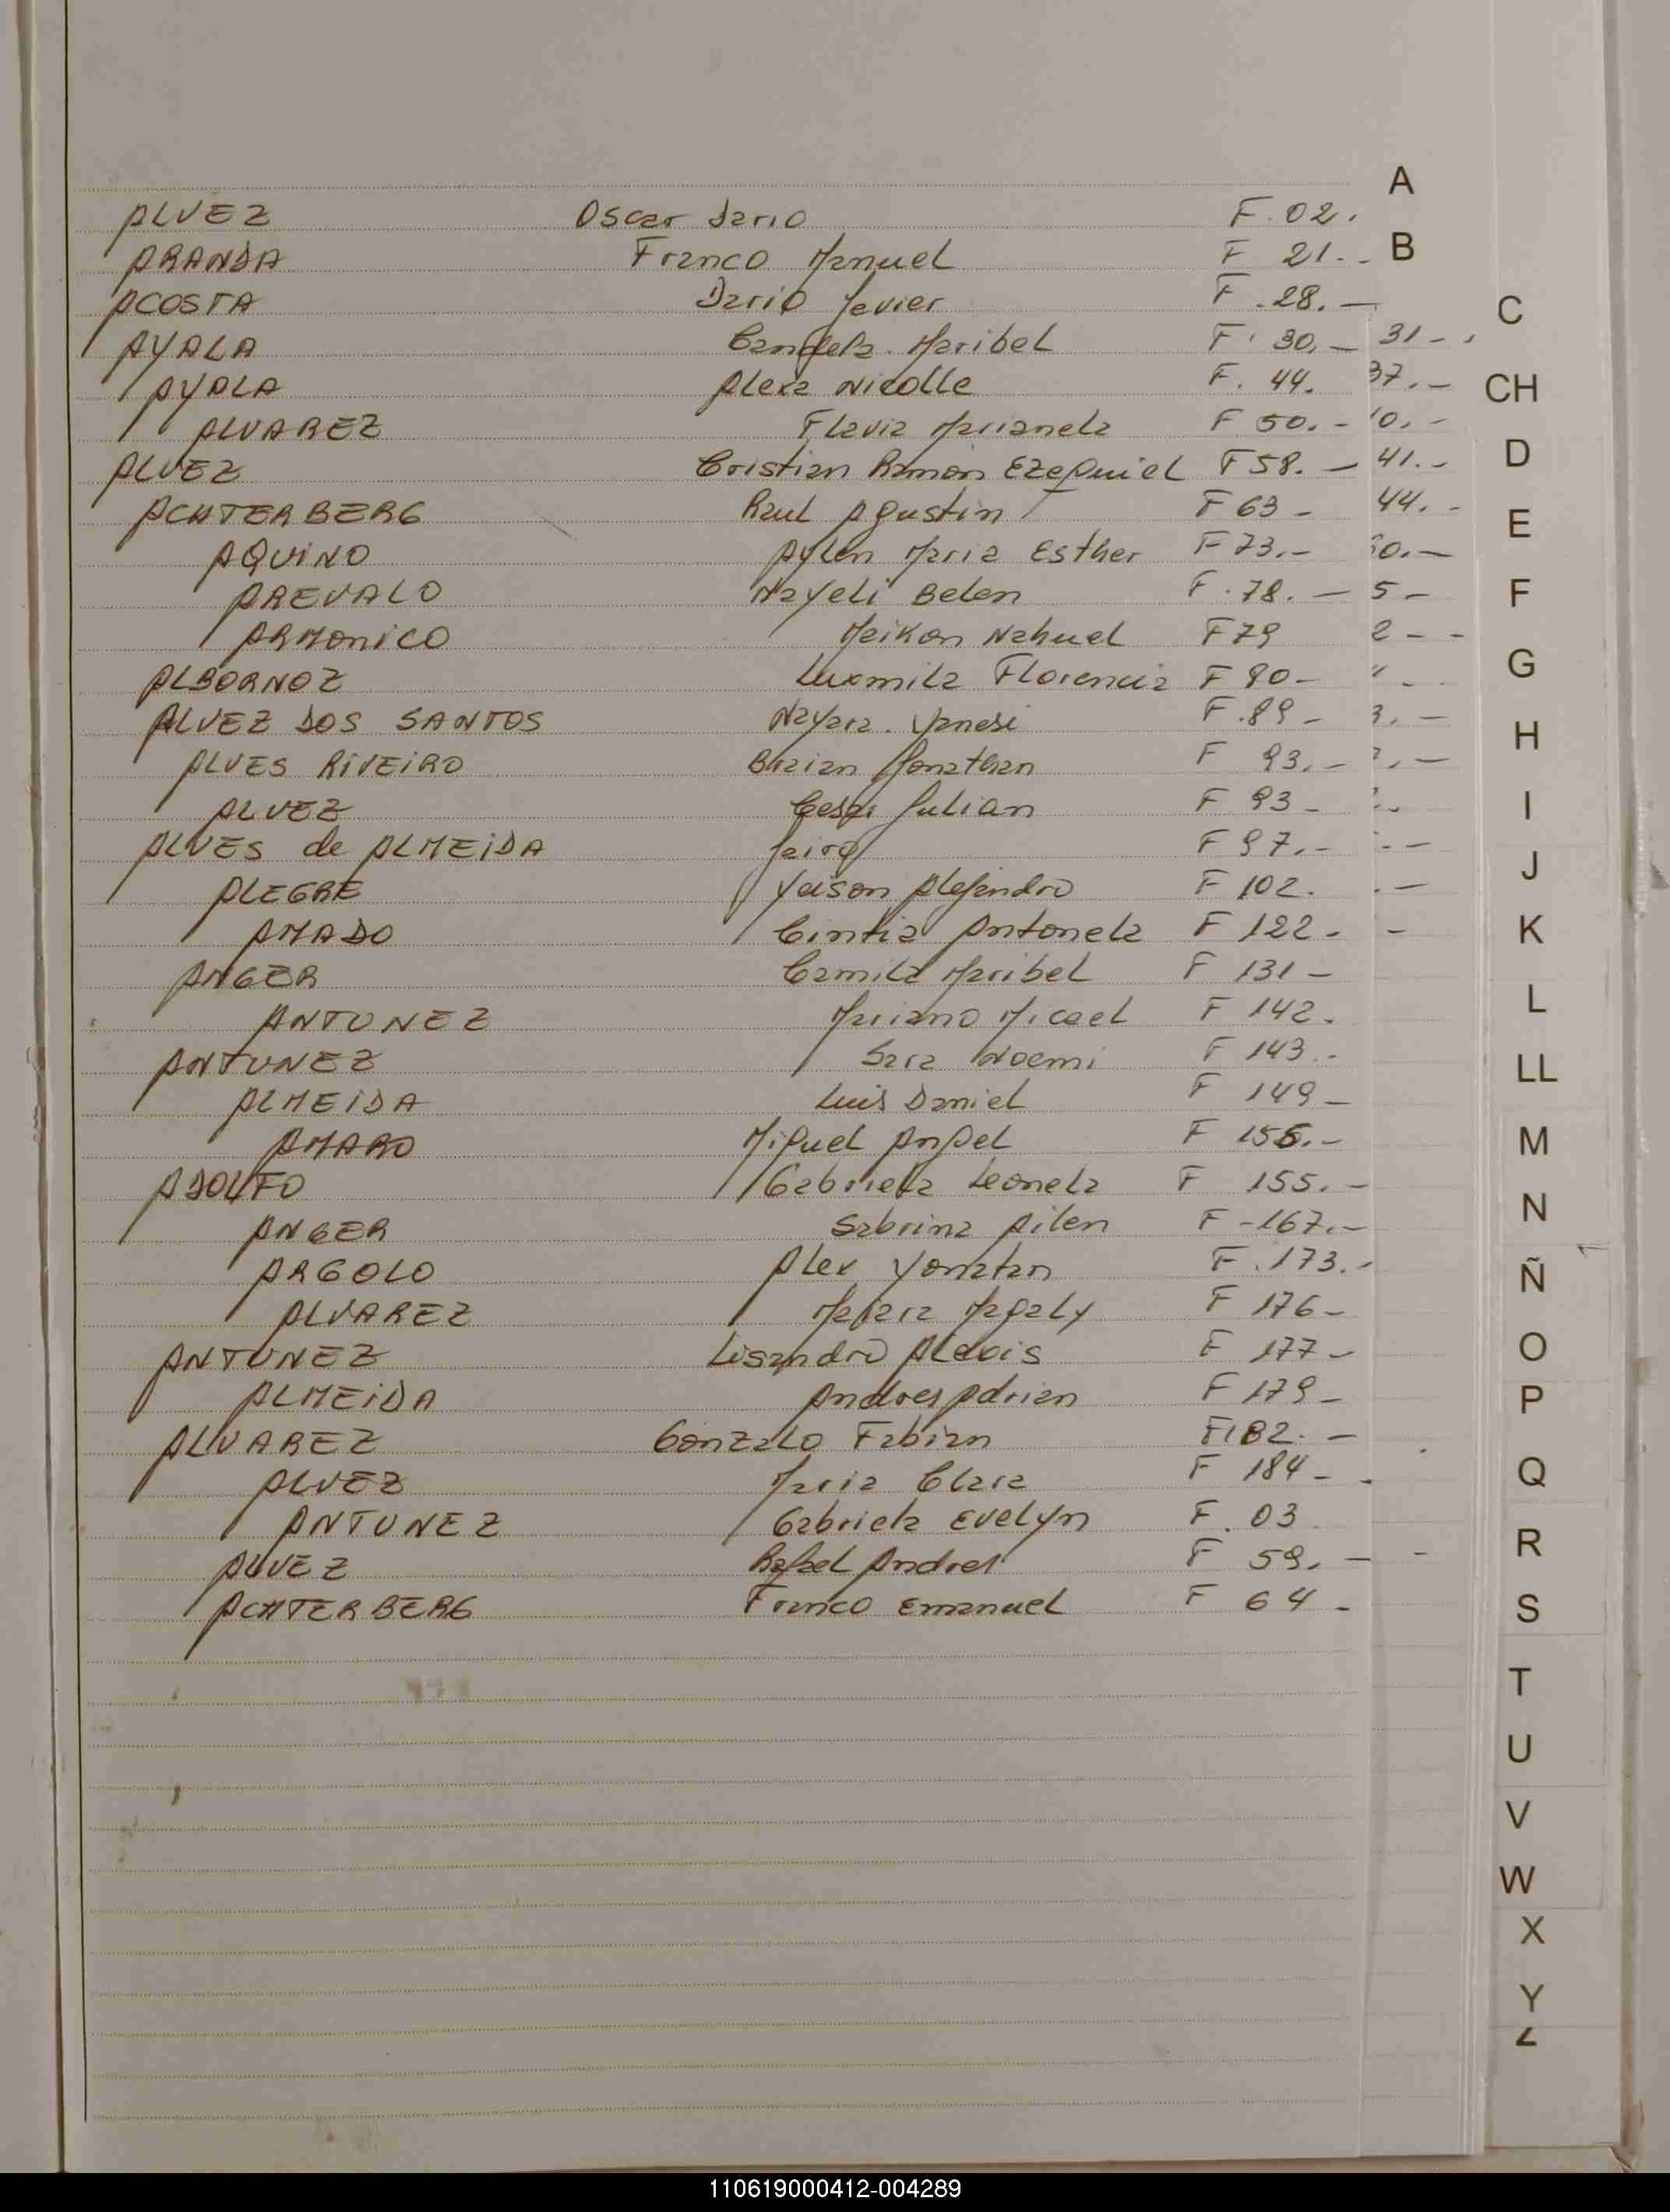 A
ALVEZ Oscar Dario F. 02.
B
ARANDA Franco Manuel F 21. -
ACOSTA Dario Javier F. 28. —
C
AYALA Candela. Maribel F. 30. — 31 -
AYALA Alexa Nicolle F. 44. 37. —
CH
ALVAREZ Flavia Marianela F 50. - 0. -
ALVEZ Cristian Ramon Ezequiel F 58. — 41. -
D
ACHTERBERG Raul Agustin F 63 - 44. -
E
AQUINO Aylen Maria Esther F 73. - 0. —
AREVALO Nayeli Belen F. 78. — 5 -
F
ARMONICO Meikon Nahuel F 79 2 - -
ALBORNOZ Luxmila Florencia F 80 - "
G
ALVEZ DOS SANTOS Nayara. Yanesi F. 89 - 3. —
H
ALVES RIVEIRO Braian Jonathan F 93. -
ALVEZ Cesar Julian F 93 -
I
ALVES de ALMEIDA Jairo F 97. -
J
ALEGRE Yeison Alejandro F 102.
AMADO Cintia Antonela F 122 -
K
ANGER Camila Maribel F 131 -
L
ANTONEZ Mariano Micael F 142.
ANTUNEZ Sara Noemi F 143. -
LL
ALMEIDA Luis Daniel F 149 -
AMARO Miguel Angel F 155. -
M
ADOLFO Gabriela Leonela F 155. -
N
ANGER Sabrina Ailen F - 167. -
ARGOLO Alex Yonatan F. 173. -
Ñ
ALVAREZ Magaly F 176 -
ANTUNEZ Lisandro Alexis F 177 -
O
ALMEIDA Andres Adrian F 179 -
P
ALVAREZ Gonzalo Fabian F 182. —
ALVEZ Maria Clara F 184 -
Q
ANTUNEZ Gabriela Evelyn F. 03
R
ALVEZ Rafael Andres F 59. —
ACHTERBERG Franco Emanuel F 64 -
S
T
U
V
W
X
Y
Z
110619000412-004289